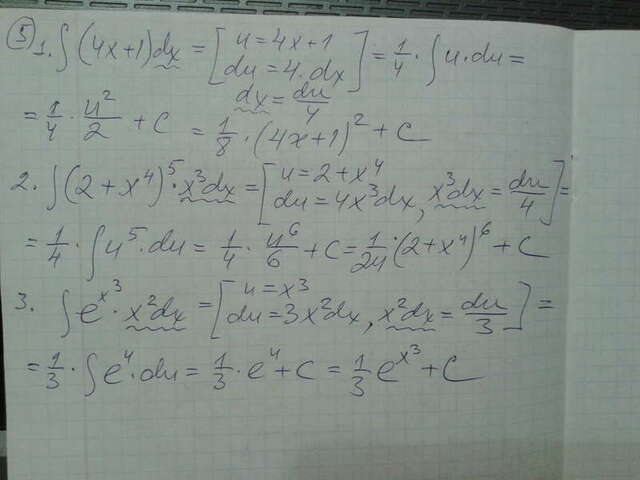 ⑤ 1. ∫(4x+1)dx = [u=4x+1 du=4·dx] = 1/4 · ∫u·du =
dx = du/4
= 1/4 · u²/2 + C = 1/8 · (4x+1)² + C
2. ∫(2+x⁴)⁵·x³dx = [u=2+x⁴ du=4x³dx, x³dx = du/4] =
= 1/4 · ∫u⁵·du = 1/4 · u⁶/6 + C = 1/24 · (2+x⁴)⁶ + C
3. ∫e^x³ · x²dx = [u=x³ du=3x²dx, x²dx = du/3] =
= 1/3 · ∫e^u · du = 1/3 · e^u + C = 1/3 e^x³ + C